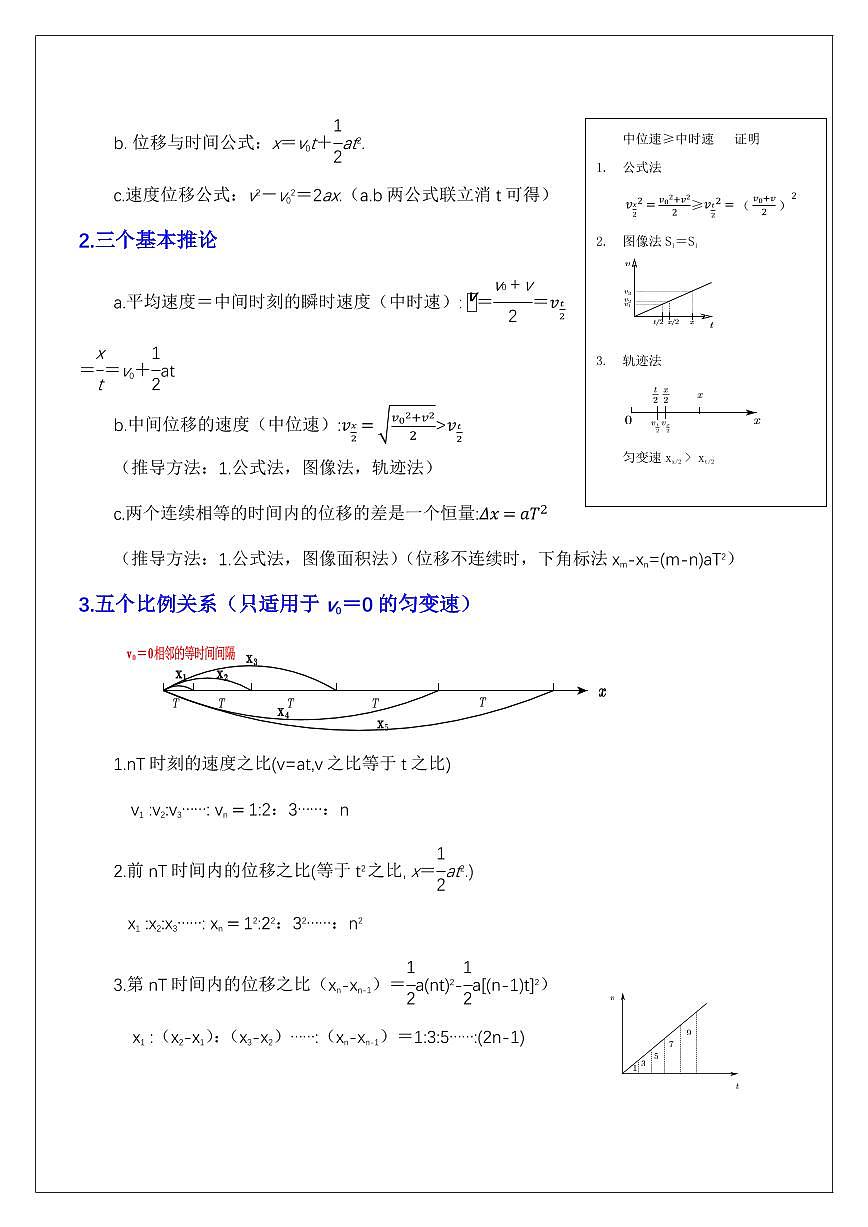 b. 位移与时间公式：x＝v₀t＋1/2at².
c.速度位移公式：v²－v₀²＝2ax.（a.b 两公式联立消 t 可得）
2.三个基本推论
a.平均速度＝中间时刻的瞬时速度（中时速）: v＝(v₀＋v)/2＝v_(t/2)
＝x/t＝v₀＋1/2at
b.中间位移的速度（中位速）:v_(x/2) = √((v₀²+v²)/2)>v_(t/2)
（推导方法：1.公式法，图像法，轨迹法）
c.两个连续相等的时间内的位移的差是一个恒量:Δx = aT²
（推导方法：1.公式法，图像面积法）（位移不连续时，下角标法 xₘ-xₙ=(m-n)aT²）
中位速≥中时速 证明
1. 公式法
v_(x/2)² = (v₀²+v²)/2 ≥ v_(t/2)² = （(v₀+v)/2）²
2. 图像法 S₁＝S₁
v
t/2 x/2 x t
3. 轨迹法
t/2 x/2 x
0 v_(t/2) v_(x/2) x
匀变速 x_(x/2) > x_(t/2)
3.五个比例关系（只适用于 v₀＝0 的匀变速）
v₀＝0相邻的等时间间隔 x₃
x₁ x₂
T T T T T x
x₄
x₅
1.nT 时刻的速度之比(v=at,v 之比等于 t 之比)
v₁ :v₂:v₃……: vₙ = 1:2：3……：n
2.前 nT 时间内的位移之比(等于 t² 之比, x＝1/2at².)
x₁ :x₂:x₃……: xₙ = 1²:2²：3²……：n²
3.第 nT 时间内的位移之比（xₙ-xₙ₋₁）＝1/2a(nt)²-1/2a[(n-1)t]²）
x₁ :（x₂-x₁）:（x₃-x₂）……:（xₙ-xₙ₋₁）＝1:3:5……:(2n-1)
1 3 5 7 9
t